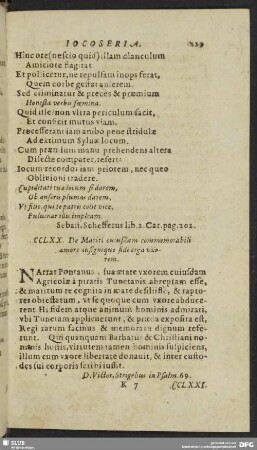 IOCOSERIA. 229
Hinc ore (nescio quid) illam clanculum
Amiciore flagitat
Et pollicetur, ne repulsam inops ferat,
Quem corbe gestat anserem.
Sed criminatur & preces & præmium
Honesta verbis fœmina.
Quid ille? non vltra periculum facit,
Et conficit mutus viam.
Præcesserant iam ambo pene stridulæ
Ad extimum Syluæ locum.
Cum præn suri manu prehendens altera
Dilecte compater, refert:
Iocum recordor iam priorem, nec queo
Oblivioni tradere.
Cupiditati tua locum si darem,
Ob anseris plumas darem,
Vt sint, quite patris colit vice,
Puluinar tibi impleam.
Sebast. Schefferus lib. 2. Car. pag. 202.
CCLXX. De Mariti cuiusdam commemorabili
amore insignique fide erga vxo-
rem.
NArrat Pontanus, sua ætate vxorem cuiusdam
Agricolæ a piratis Tunetanis abreptam esse,
& maritum re cognita in mate desiliisse, & rap-
tores obiectatum, vt se quoque cum vxore abduce-
rent. Hi fidem atque animum hominis admirati,
vbi Tunetam applicuerunt, & præda exposita est,
Regi rarum facinus & memoratu dignum refe-
runt. Qui quanquam Barbarus & Christiani no-
minis hostis, virtutem tamen hominis suspiciens,
illum cum vxore libertate donauit, & inter custo-
des sui corporis scribi iussit.
D. Victor. Strigelius in Psalm. 69.
K 7 CCLXXI.
SLUB
DFG